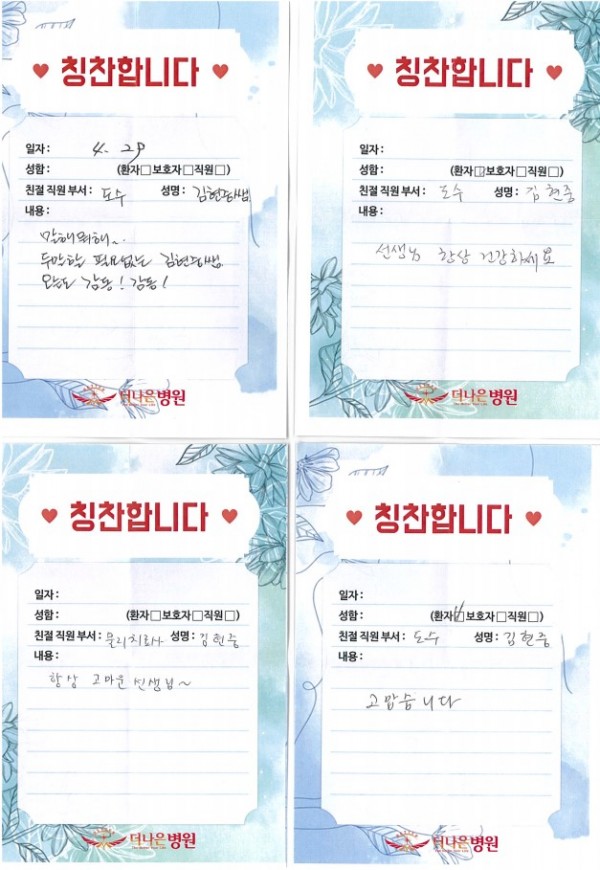 칭찬합니다
일자 : 4. 29
성함 : (환자□보호자□직원□)
친절 직원 부서 : 도수 성명 : 김현중쌤
내용 :
말해뭐해~
두말할 필요없는 김현중쌤
오늘도 감동! 감동!
더나은병원
칭찬합니다
일자 :
성함 : (환자□보호자□직원□)
친절 직원 부서 : 도수 성명 : 김현중
내용 :
선생님 항상 건강하세요
더나은병원
칭찬합니다
일자 :
성함 : (환자□보호자□직원□)
친절 직원 부서 : 물리치료사 성명 : 김현중
내용 :
항상 고마운 선생님~
더나은병원
칭찬합니다
일자 :
성함 : (환자☑보호자□직원□)
친절 직원 부서 : 도수 성명 : 김현중
내용 :
고맙습니다
더나은병원